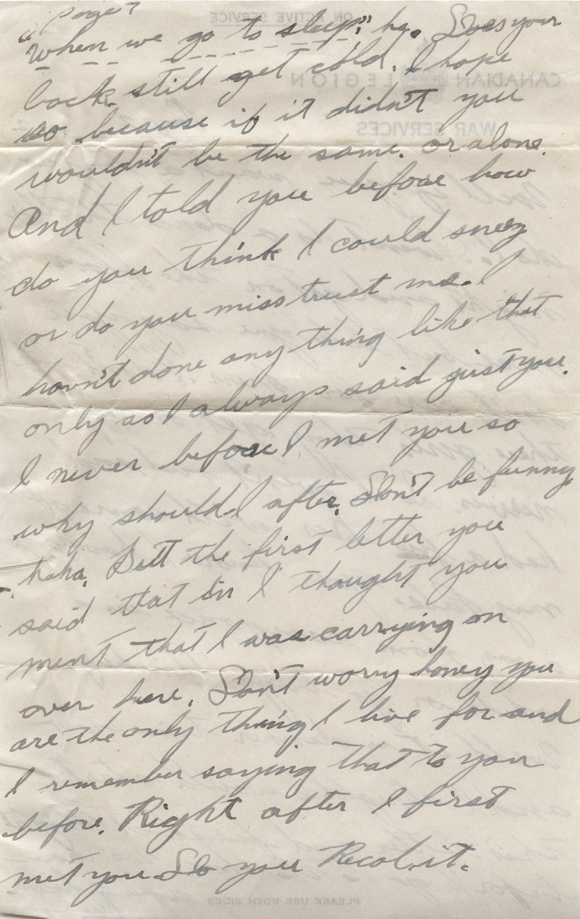 Page 7
"When we go to sleep." ha. Does your
back still get cold. I hope
so because if it didn't you
wouldn't be the same. or alone.
And I told you before how
do you think I could sneez
or do you misstrust me. I
havn't done any thing like that
only as I always said just you.
I never before I met you so
why should I after. Don't be funny
haha. But the first letter you
said that in I thought you
ment that I was carrying on
over here. Don't worry honey you
are the only thing I live for and
I remember saying that to you
before. Right after I first
met you. Do you Recol. it.
ON ACTIVE SERVICE
CANADIAN LEGION
WAR SERVICES
PLEASE USE BOTH SIDES